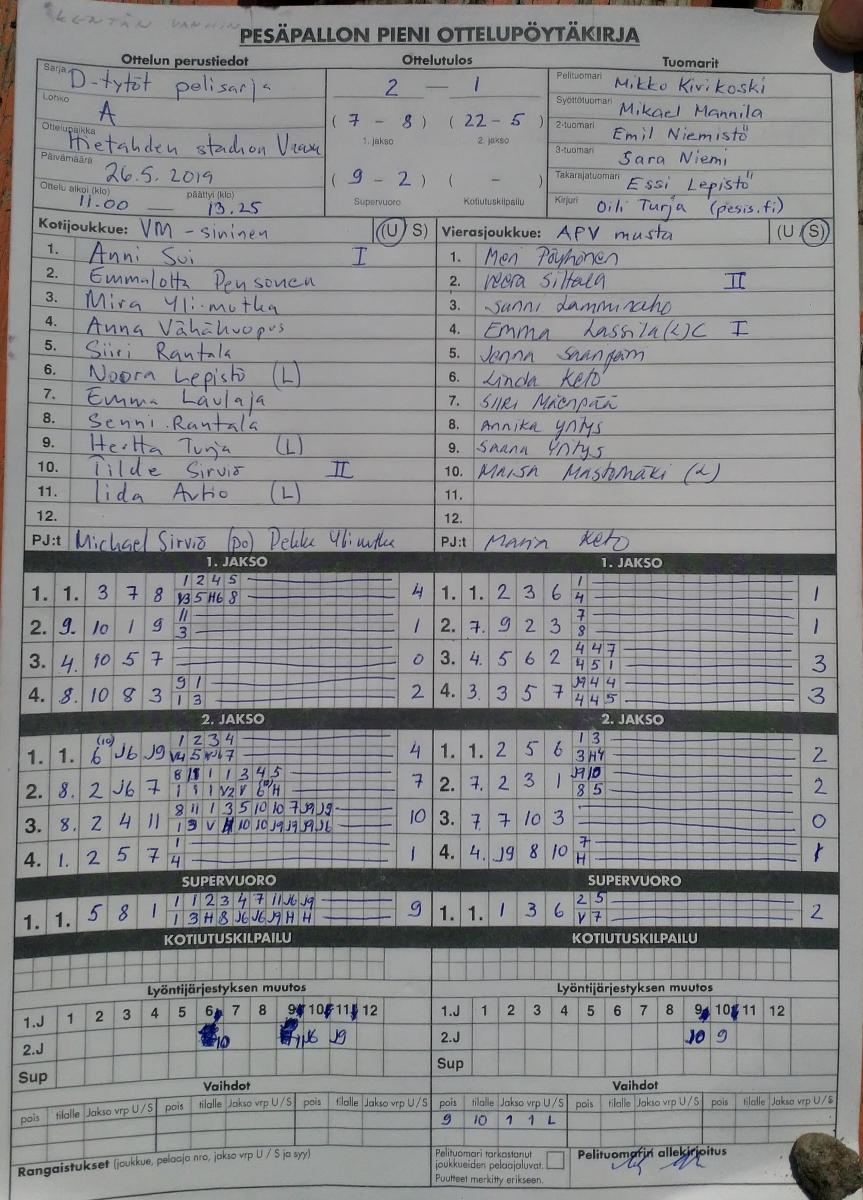 KENTÄN VANHIN
PESÄPALLON PIENI OTTELUPÖYTÄKIRJA
Ottelun perustiedot
Sarja D-tytöt pelisarja
Lohko A
Ottelupaikka Hietalahden stadion Vaasa
Päivämäärä 26.5. 2019
Ottelu alkoi (klo) 11.00 — päättyi (klo) 13.25
Ottelutulos
2 — 1
( 7 - 8 ) ( 22 - 5 )
1. jakso 2. jakso
( 9 - 2 ) ( - )
Supervuoro Kotiutuskilpailu
Tuomarit
Pelituomari Mikko Kivikoski
Syöttötuomari Mikael Mannila
2-tuomari Emil Niemistö
3-tuomari Sara Niemi
Takarajatuomari Essi Lepistö
Kirjuri Oili Turja (pesis.fi)
Kotijoukkue: VM - sininen (U S)
1. Anni Sui I
2. Emmalotta Pensonen
3. Mira Ylimutka
4. Anna Vähähuopus
5. Siiri Rantala
6. Noora Lepistö (L)
7. Emma Laulaja
8. Senni Rantala
9. Hertta Turja (L)
10. Tilde Sirviö II
11. Iida Autio (L)
12.
PJ:t Michael Sirviö (po) Pekka Ylimutka
Vierasjoukkue: APV musta (U S)
1. Meri Pöyhönen
2. Veera Siltala II
3. Sanni Lamminaho
4. Emma Lassila (L) C I
5. Jenna Saarijärvi
6. Linda Keto
7. Siiri Mäenpää
8. Annika Yritys
9. Saana Yritys
10. Maisa Mastomäki (L)
11.
12.
PJ:t Maria Keto
1. JAKSO
1. 1. 3 7 8 1 2 4 5 4
V3 5 H6 8
2. 9. 10 1 9 11 1
3
3. 4. 10 5 7 0
4. 8. 10 8 3 9 1 2
1 3
1. JAKSO
1. 1. 2 3 6 1 1
4
2. 7. 9 2 3 7 1
8
3. 4. 5 6 2 4 4 7 3
4 5 1
4. 3. 3 5 7 J9 4 4 3
4 4 5
2. JAKSO
1. 1. 6 (10) J6 J9 1 2 3 4 4
2. 8. 2 J6 7 7
3. 8. 2 4 11 8 11 1 3 5 10 10 7 J9 J9 10
4. 1. 2 5 7 1 1
4
2. JAKSO
1. 1. 2 5 6 1 3 2
3 H4
2. 7. 2 3 1 J9 10 2
8 5
3. 7. 7 10 3 0
4. 4. J9 8 10 7 1
H
SUPERVUORO
1. 1. 5 8 1 1 1 2 3 4 7 11 J6 J9 9
1 3 H 8 J6 J6 J9 H H
SUPERVUORO
1. 1. 1 3 6 2 5 2
V 7
KOTIUTUSKILPAILU
KOTIUTUSKILPAILU
Lyöntijärjestyksen muutos
1.J 1 2 3 4 5 6 7 8 9 10 11 12
2.J 10 J6 J9
Sup
Lyöntijärjestyksen muutos
1.J 1 2 3 4 5 6 7 8 9 10 11 12
2.J 10 9
Sup
Vaihdot
pois tilalle Jakso vrp U / S pois tilalle Jakso vrp U / S pois tilalle Jakso vrp U / S
Vaihdot
pois tilalle Jakso vrp U / S pois tilalle Jakso vrp U / S pois tilalle Jakso vrp U / S
9 10 1 1 L
Rangaistukset (joukkue, pelaaja nro, jakso vrp U / S ja syy)
Pelituomari tarkastanut
joukkueiden pelaajaluvat.
Puutteet merkitty erikseen.
Pelituomarin allekirjoitus